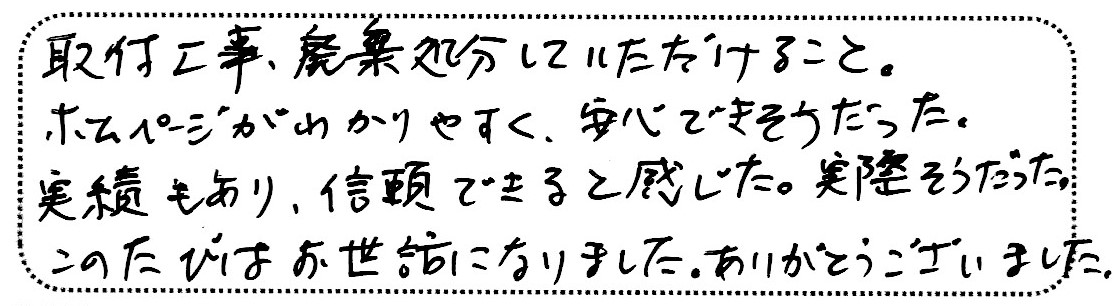 取付工事、廃棄処分していただけること。
ホームページがわかりやすく、安心できそうだった。
実績もあり、信頼できると感じた。実際そうだった。
このたびはお世話になりました。ありがとうございました。